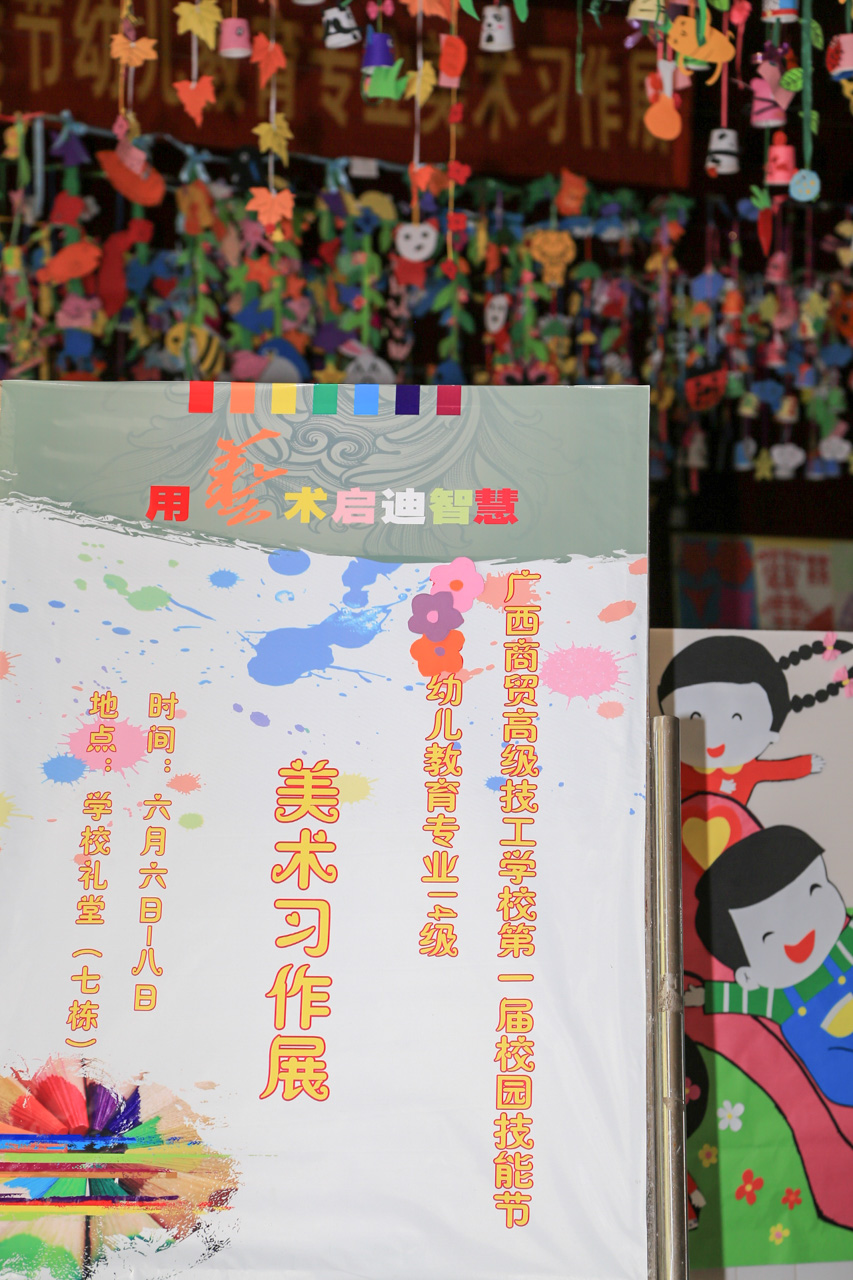 节幼儿教育专业美术习作展
用藝术启迪智慧
广西商贸高级技工学校第一届校园技能节
幼儿教育专业14级
美术习作展
时间：六月六日—八日
地点：学校礼堂（七栋）